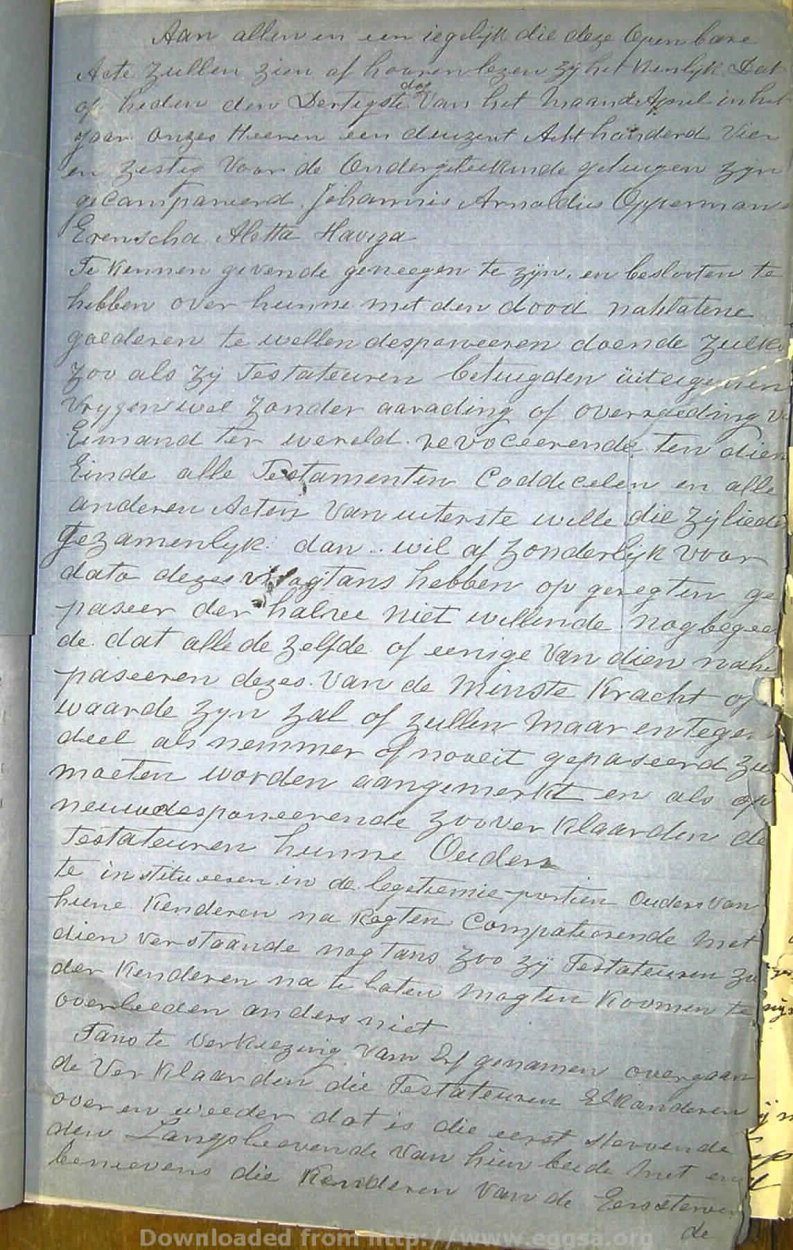 Aan allen en een iegelijk die deze Openbare
Acte zullen zien of hooren lezen zij het kenlijk Dat
op heden den Dertigste dag Van het maand April in het
Jaar onzes Heeren een duizent Acht honderd Vier
en zestig Voor de Ondergetekende getuigen zyn
gecompareerd Johannis Arnoldus Opperman
Erenscha Aletta Haviga
Te kennen gevende geneegen te zijn, en besloten te
hebben over hunne met den dood nalatene
goederen te wellen desponeeren doende zulks
zoo als zy Testateuren betuigden uit eigenen
Vrygen wel zonder aarading of overreeding
Eimand ter wereld revoceerende ten dien
Einde alle Testamenten Coddecelen en alle
anderen Acten van uiterste wille die zylieden
Gezamenlyk dan wil af zonderlyk voor
dato dezes nogtans hebben op geregten ge
paseer der halve niet willende nog begee
de dat alle de zelfde of eenige Van dien nahe
paseeren dezes Van de minste Kracht of
waarde zyn zal of zullen maar en tegen
deel als nemmer of nooeit gepaseerd zu
moeten worden aangemerkt en als op
neuw desponeerende zoo ver Klaarden de
Testateuren hunne Ouders
te institueeren in de legetiemie portien Ouders van
hune Kenderen na Rogten Compatierende met
dien verstaande nogtans zoo zy Testateuren zo
der Kenderen na te laten mogten Koomen te
overleeden anders niet
Tans te verkiezing van Erfgenamen overgaan
de Ver Klaarden die Testateuren Elkanderen
over en weeder dat is die eerst stervende
den Langsleevende van hun beide met en
benevens die Kenderen Van de Eerststerven
de
Downloaded from http://www.eggsa.org